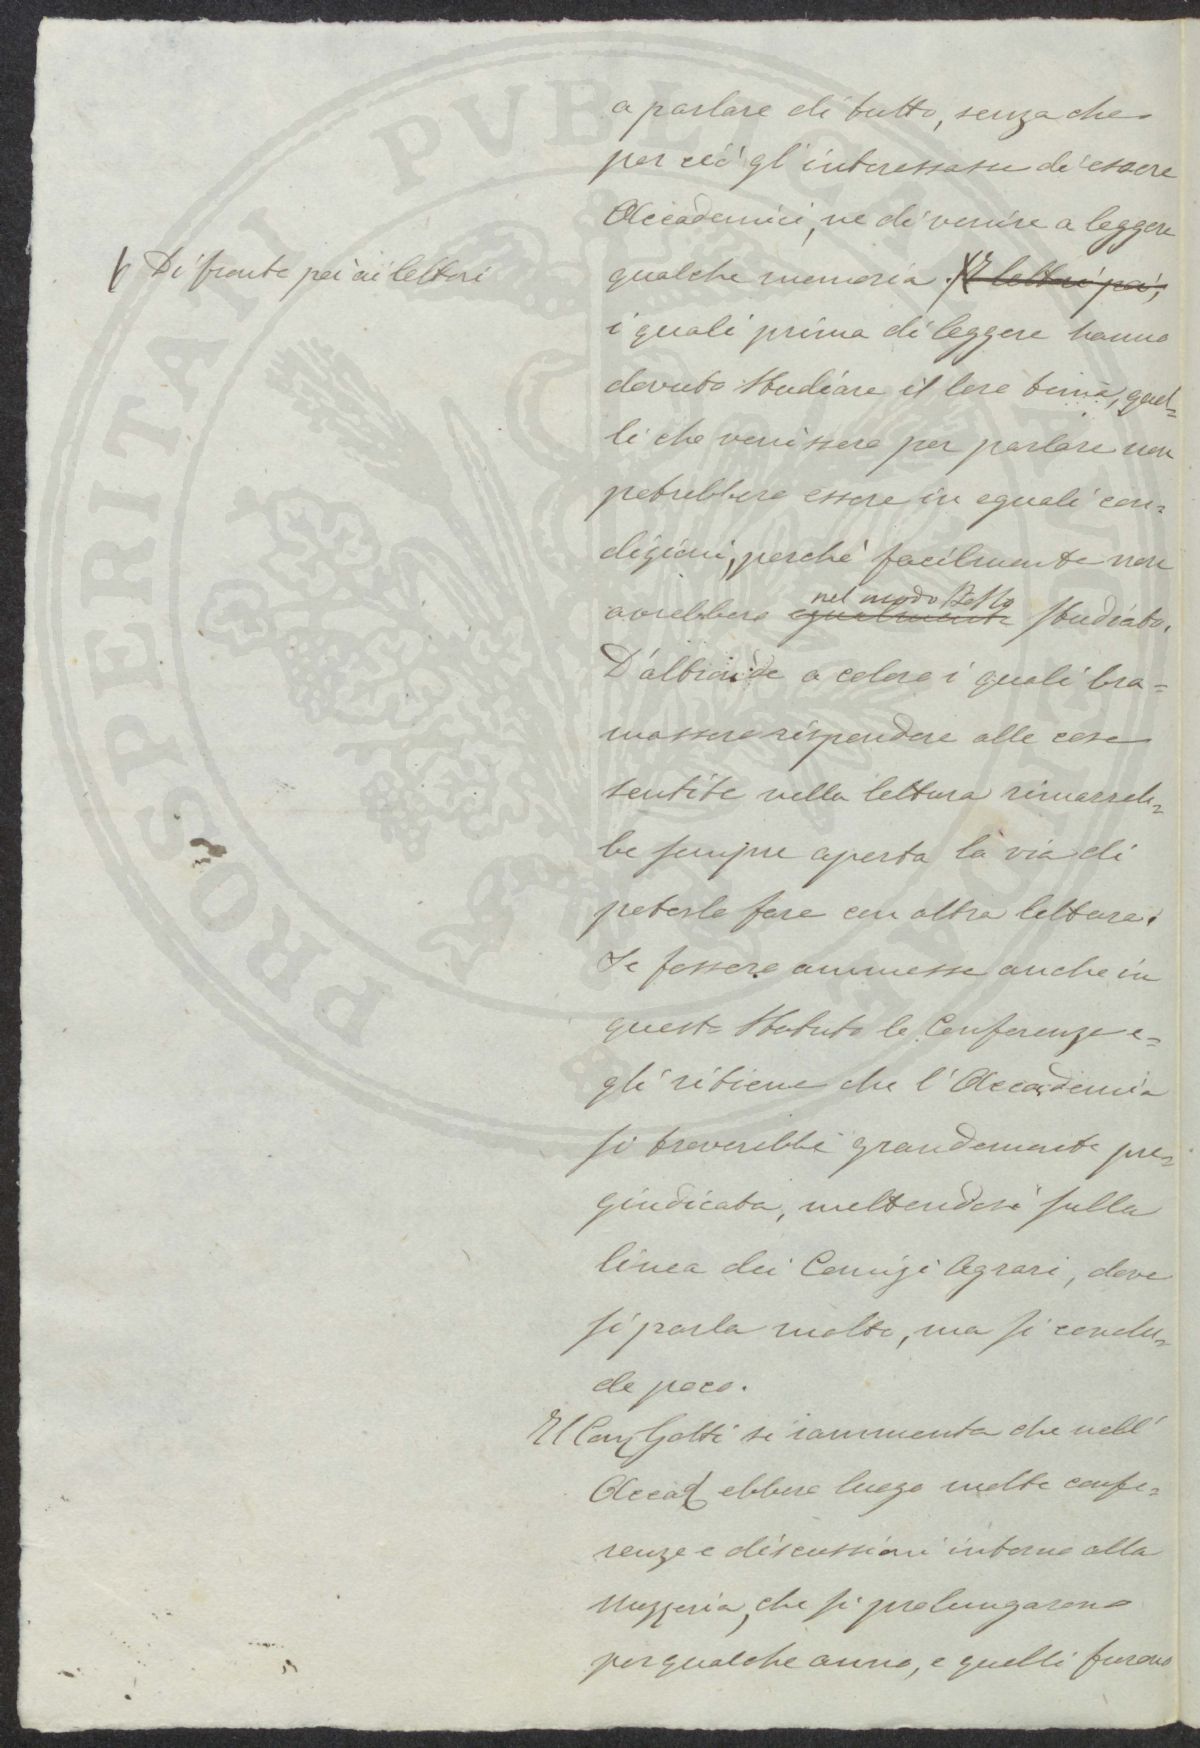 a parlare di tutto, senza che
per ciò gl'interessasse di essere
Accademici, ne di venire a leggere
Di fronte poi ai lettori
qualche memoria. I lettori poi,
i quali prima di leggere hanno
dovuto studiare il loro tema, quel=
li che venissero per parlare non
potrebbero essere in eguali con=
dizioni, perchè facilmente non
nel modo stesso
avrebbero egualmente studiato.
D'altronde a coloro i quali bra=
massero rispondere alle cose
sentite nella lettura rimarreb=
be sempre aperta la via di
poterlo fare con altra lettura.
Se fossero ammesse anche in
questo Statuto le Conferenze e=
gli ritiene che l'Accademia
si troverebbe grandemente pre=
giudicata, mettendosi sulla
linea dei Comizi Agrari, dove
si parla molto, ma si conclu=
de poco.
Il Cons Gotti si rammenta che nell'
Accad ebbero luogo molte confe=
renze e discussioni intorno alla
Mezzeria, che si prolungarono
per qualche anno, e quelli furono